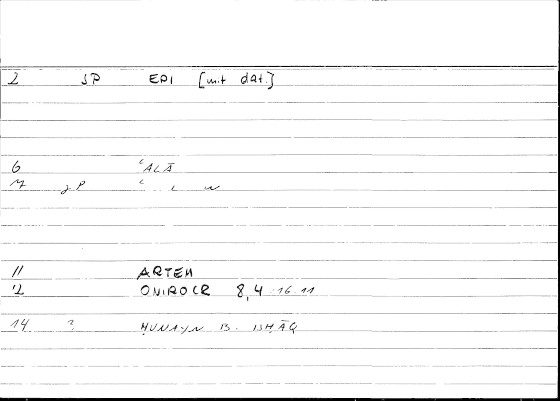 2 JP EPI [mit dat.]
6 ʿALĀ
JP ʿ L W
11 ARTEM
12 ONIROCR 8,4 16.11
14 ? ḤUNAYN B. ISḤĀQ